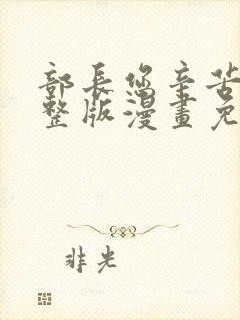 部長您辛苦
整版漫畫免
非光